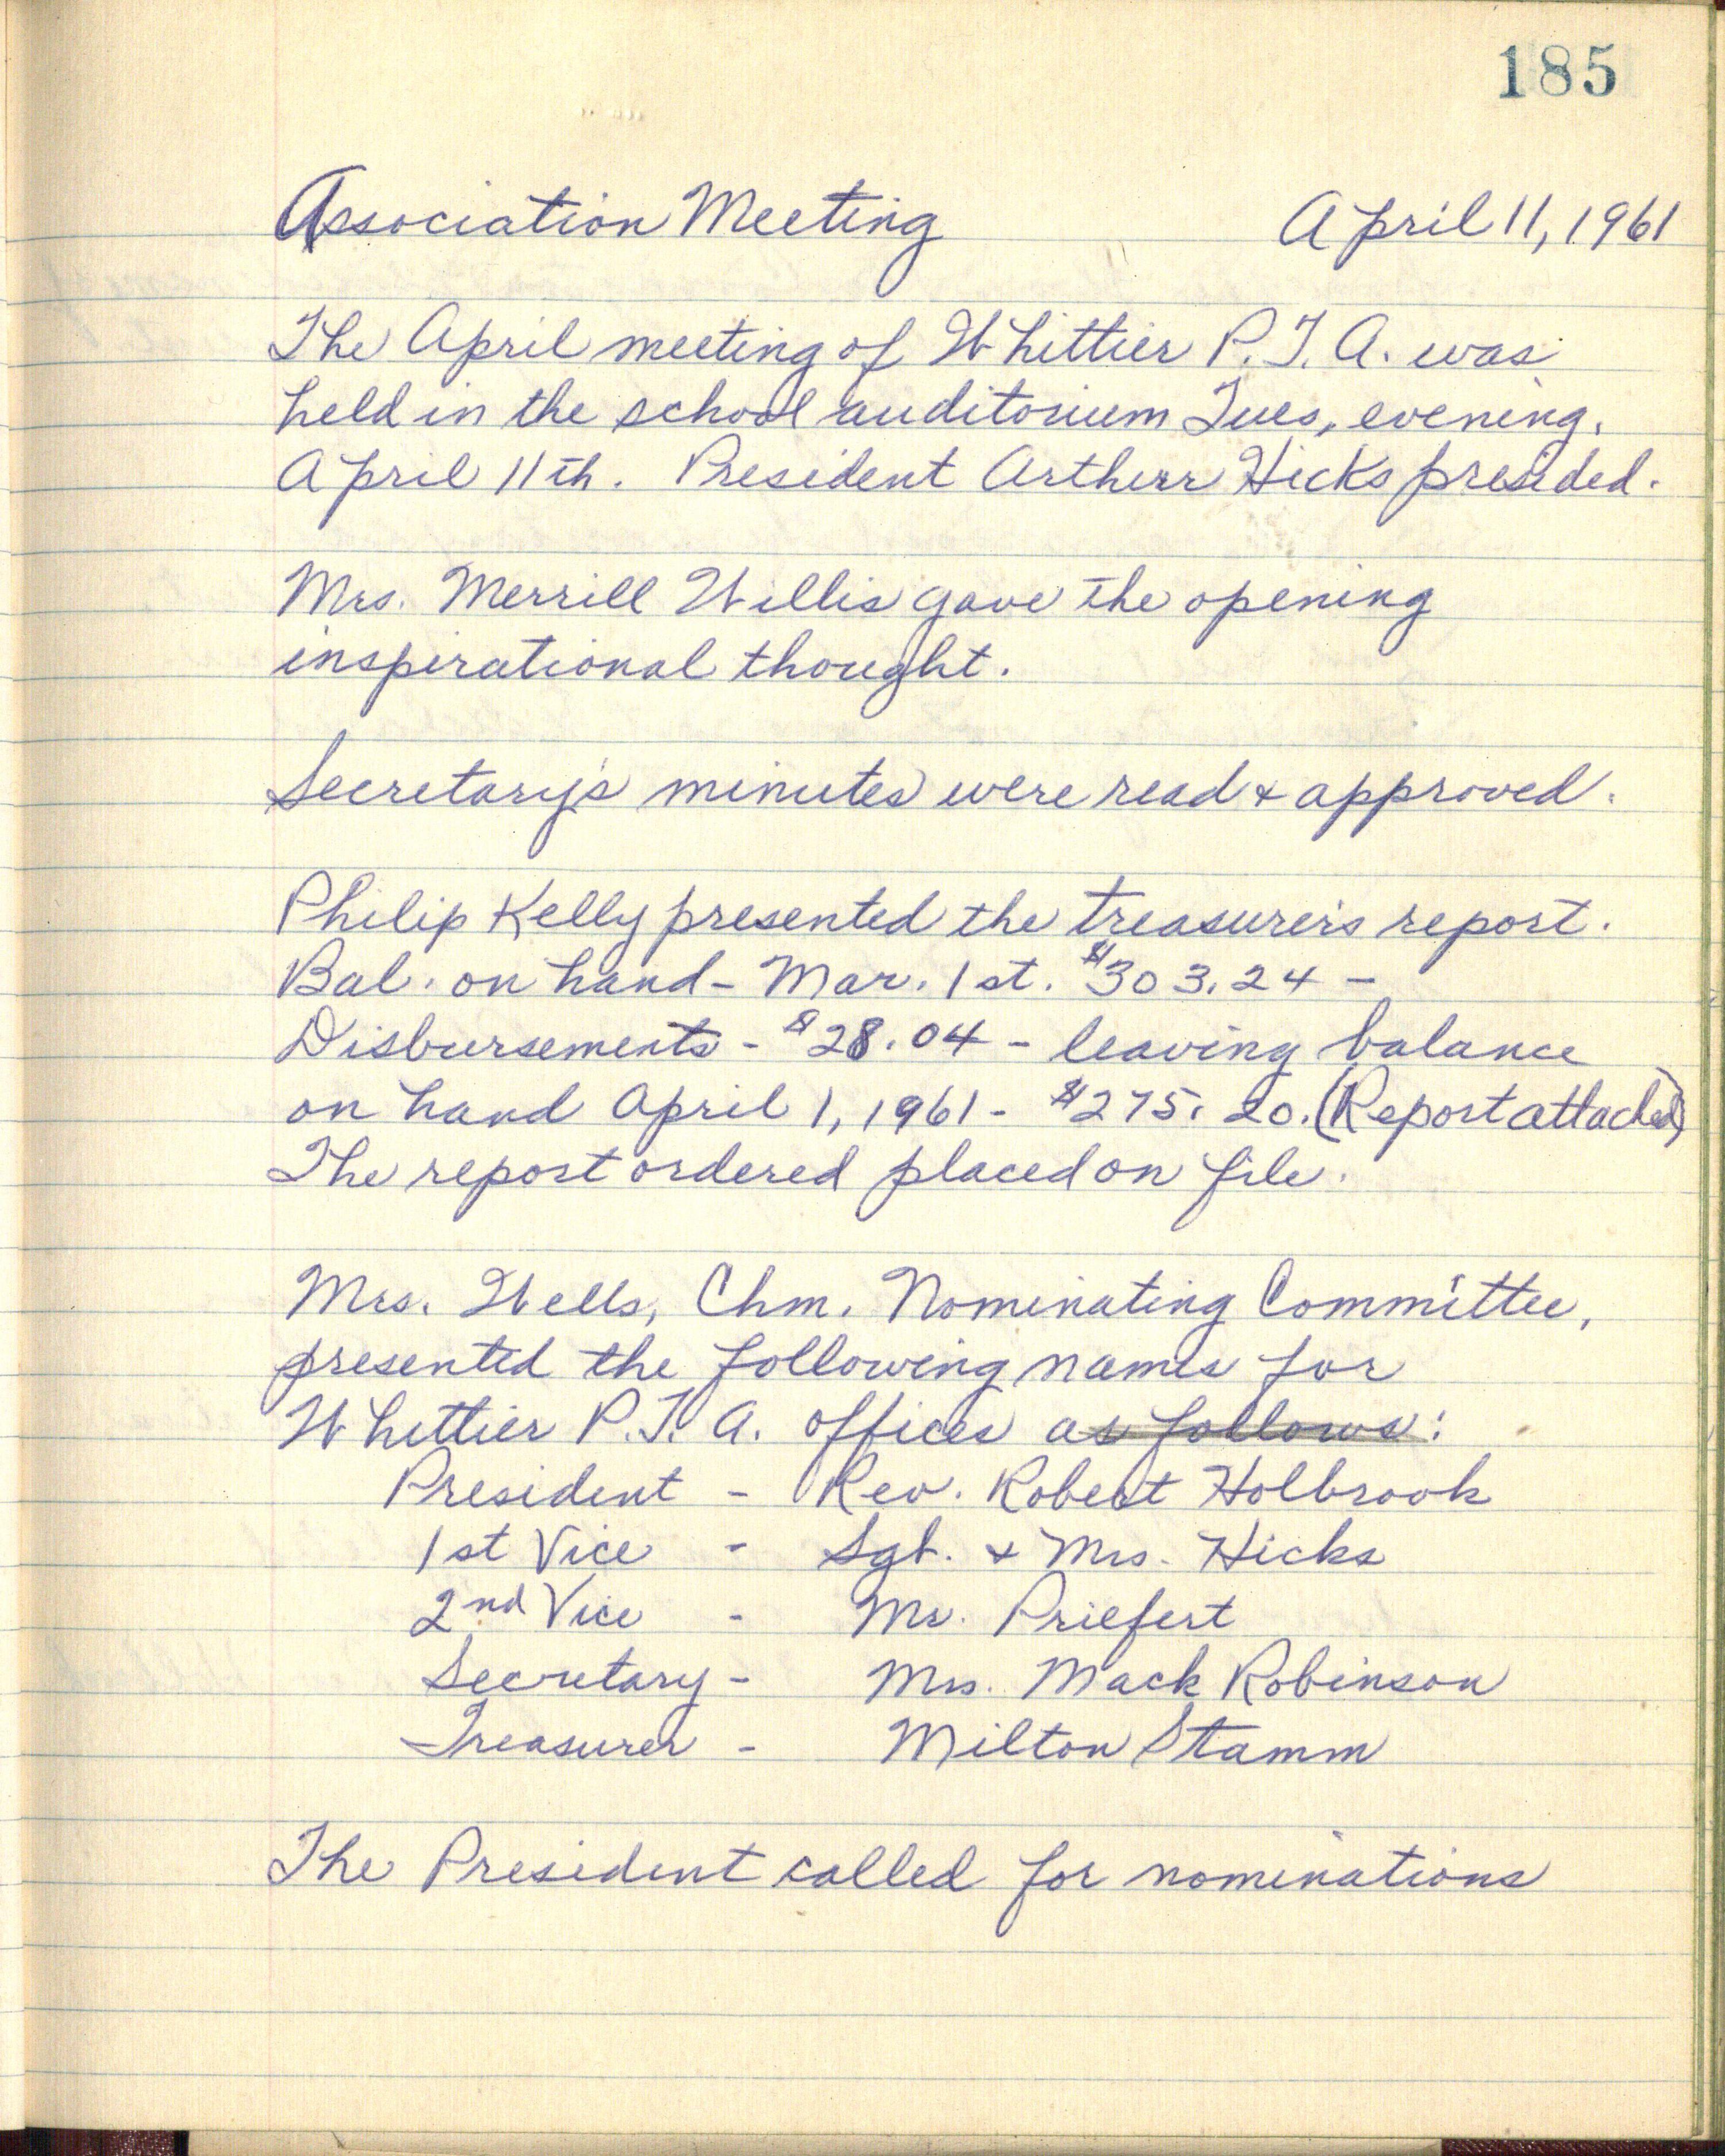 185
Association Meeting April 11, 1961
The April meeting of Whittier P.T.A. was
held in the school auditorium Tues, evening,
April 11th. President Arthur Hicks presided.
Mrs. Merrill Willis gave the opening
inspirational thought.
Secretary's minutes were read & approved.
Philip Kelly presented the treasurer's report.
Bal. on hand - Mar. 1st. $303.24 -
Disbursements - $28.04 - leaving balance
on hand April 1, 1961 - $275.20. (Report attached)
The report ordered placed on file.
Mrs. Wells, Chm. Nominating Committee,
presented the following names for
Whittier P.T.A. offices as follows:
President - Rev. Robert Holbrook
1st Vice - Sgt. & Mrs. Hicks
2nd Vice - Mr. Priefert
Secretary - Mrs. Mack Robinson
Treasurer - Milton Stamm
The President called for nominations